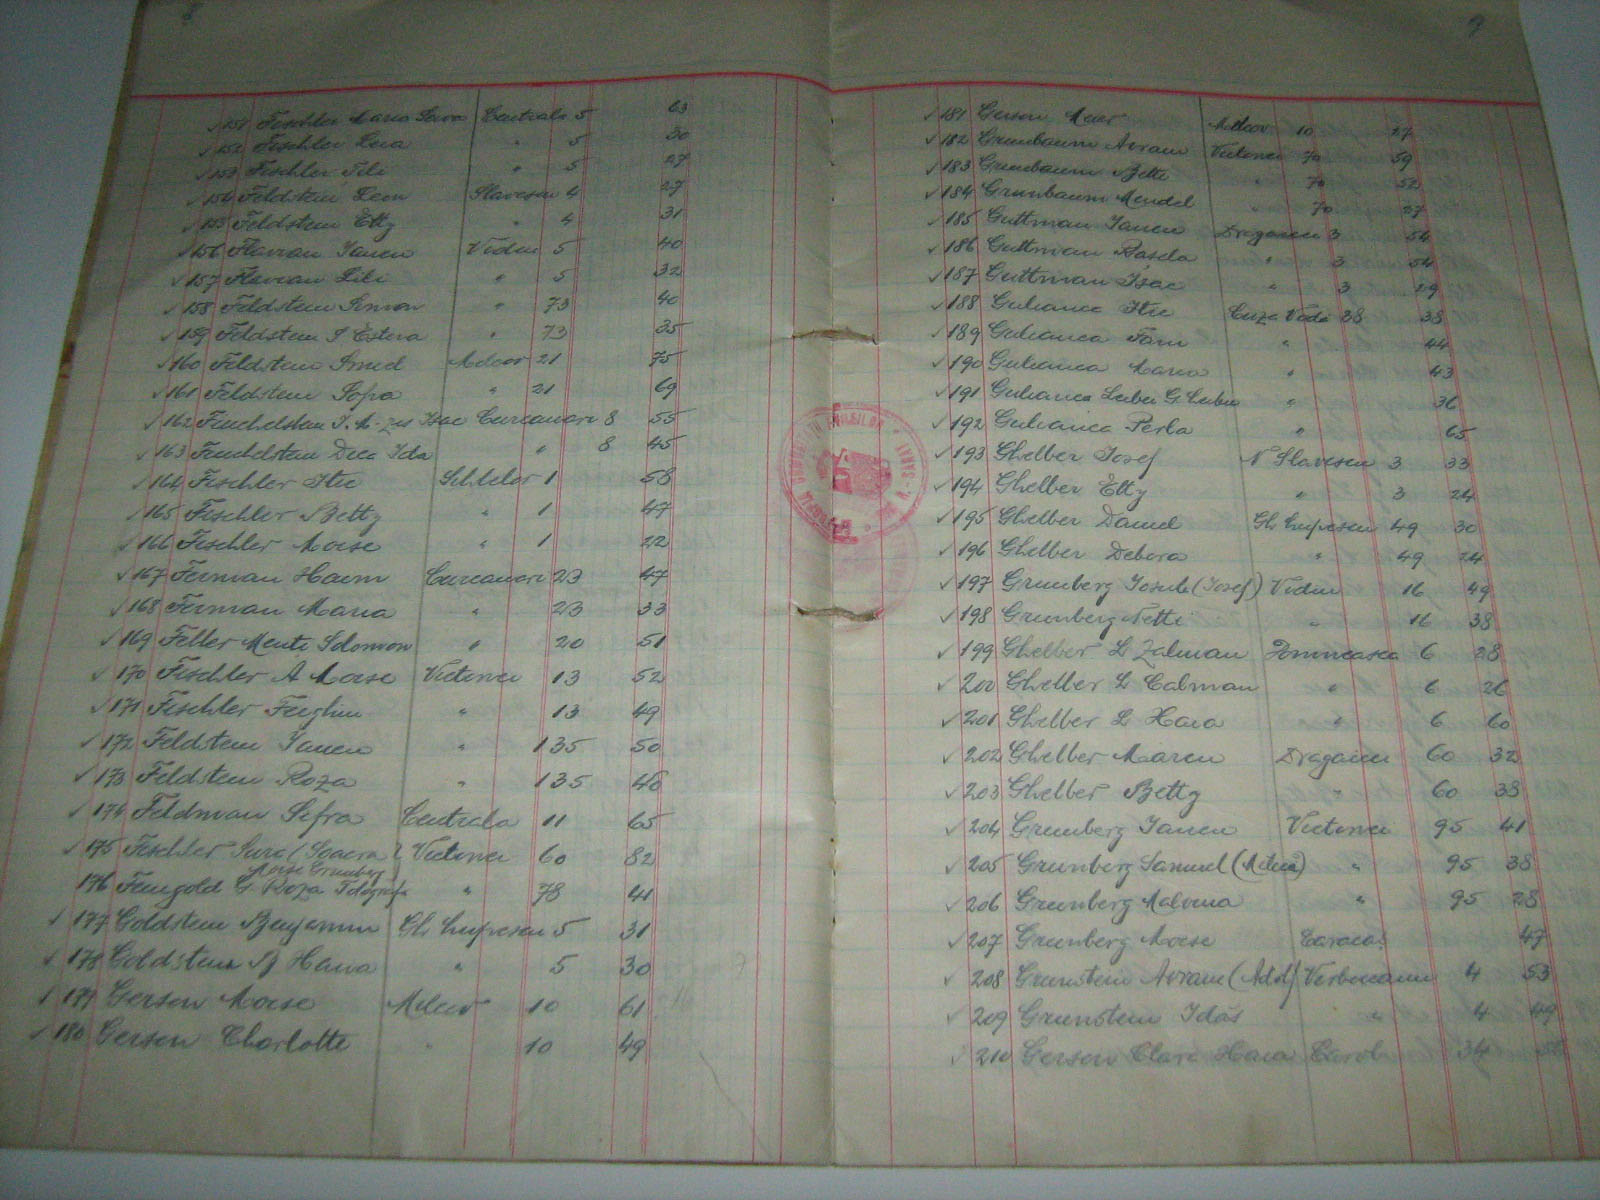 8
151 Fischler Maria Sura Centrala 5 63
152 Fischler Lea " 5 30
153 Fischler Fili " 5 27
154 Feldstein Leon Slavescu 4 27
155 Feldstein Etty " 4 31
156 Flavian Iancu Vidin 5 40
157 Flavian Lili " 5 32
158 Feldstein Simon " 73 40
159 Feldstein S Estera " 73 35
160 Feldstein Smed Milcov 21 75
161 Feldstein Sofra " 21 69
162 I. M. zis Isac Curcanari 8 55
163 Ida " 8 45
164 Fischler Itic Selelor 1 58
165 Fischler Betty " 1 47
166 Fischler Moise " 1 22
167 Ferman Haim Curcanari 23 47
168 Ferman Maria " 23 33
169 Feller Solomon " 20 51
170 Fischler A Moise Victoriei 13 52
171 Fischler " 13 49
172 Feldstein Iancu " 135 50
173 Feldstein Roza " 135 48
174 Feldman Sefra Centrala 11 65
175 Fischler Sura (Soacra Victoriei 60 82
Moise Grunberg)
176 Feingold G. Roza " 78 41
177 Goldstein Benjamin Gh. Lupescu 5 31
178 Goldstein B Hana " 5 30
179 Gerson Moise Milcov 10 61
180 Gerson Charlotte " 10 49
9
181 Gerson Meer Milcov 10 27
182 Grunbaum Avram Victoriei 70 59
183 Grunbaum Betti " 70 52
184 Grunbaum Mendel " 70 27
185 Guttman Iancu Dragaicei 3 54
186 Guttman Rasela " 3 54
187 Guttman Isac " 3 29
188 Gulianca Itic Cuza Voda 28 38
189 Gulianca Fani " 44
190 Gulianca Maria " 43
191 Gulianca Leiba G. Leibu " 36
192 Gulianca Perla " 65
193 Ghelber Iosef N Slavescu 3 33
194 Ghelber Etty " 3 24
195 Ghelber Daniel Gh. Lupescu 49 30
196 Ghelber Debora " 49 24
197 Grunberg (Iosef) Vidin 16 49
198 Grunberg Netti " 16 38
199 Ghelber L Zalman Domneasca 6 28
200 Ghelber L Calman " 6 26
201 Ghelber L Haia " 6 60
202 Ghelber Marcu Dragaicei 60 32
203 Ghelber Betty " 60 38
204 Grunberg Iancu Victoriei 95 41
205 Grunberg Samuel " 95 38
206 Grunberg Malvina " 95 28
207 Grunberg Moise 47
208 Grunstein Avram (Adolf 4 53
209 Grunstein Idas " 4 49
210 Gerson Clara Haia Carol 34